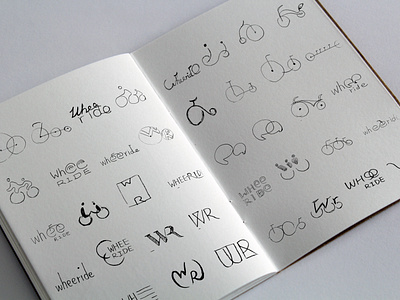 Whee
ride
WHEE
RIDE
wheeride
whee
RIDE
W
R
WHEERIDE
WHEE
RIDE
WR
wheeride
W
R
WR
Wheeride
whee
ride
wheeride
WHEE
RIDE
WHEE
RIDE